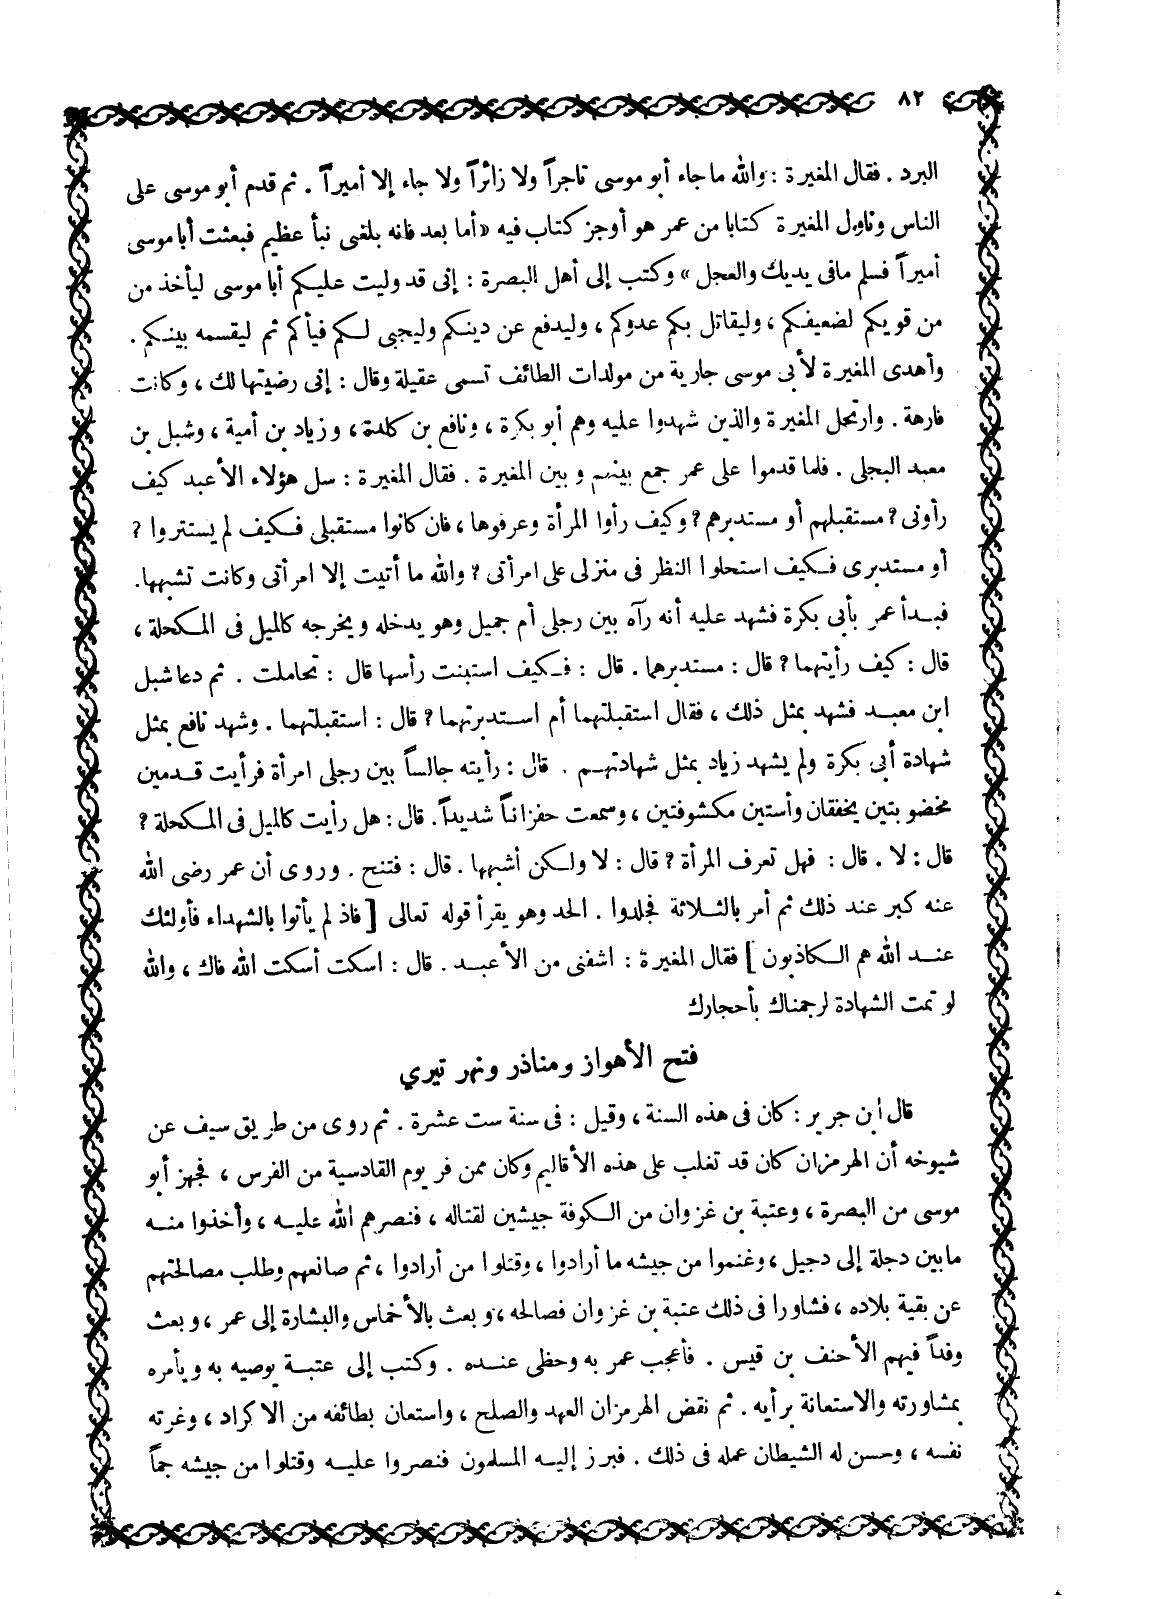 ٨٢
البرد . فقال المغيرة : والله ما جاء أبو موسى تاجراً ولا زائراً ولا جاء إلا أميراً . ثم قدم أبو موسى على
الناس وناول المغيرة كتابا من عمر هو أوجز كتاب فيه «أما بعد فانه بلغنى نبأ عظيم فبعثت أبا موسى
أميراً فسلم مافى يديك والعجل» وكتب إلى أهل البصرة : إنى قد وليت عليكم أبا موسى ليأخذ من
من قويكم لضعيفكم ، وليقاتل بكم عدوكم ، وليدفع عن دينكم وليجبى لكم فيأكم ثم ليقسمه بينكم .
وأهدى المغيرة لأبى موسى جارية من مولدات الطائف تسمى عقيلة وقال : إنى رضيتها لك ، وكانت
فارهة . وارتحل المغيرة والذين شهدوا عليه وهم أبو بكرة ، ونافع بن كلدة ، وزياد بن أمية ، وشبل بن
معبد البجلى . فلما قدموا على عمر جمع بينهم و بين المغيرة . فقال المغيرة : سل هؤلاء الأعبد كيف
رأونى ? مستقبلهم أو مستدبرهم ? وكيف رأوا المرأة وعرفوها ، فان كانوا مستقبلى فكيف لم يستتروا ?
أو مستدبرى فكيف استحلوا النظر فى منزلى على امرأتى ? والله ما أتيت إلا امرأتى وكانت تشبهها.
فبدأ عمر بأبى بكرة فشهد عليه أنه رآه بين رجلى أم جميل وهو يدخله ويخرجه كالميل فى المكحلة ،
قال : كيف رأيتهما ? قال : مستدبرهما . قال : فكيف استبنت رأسها قال : تحاملت . ثم دعا شبل
ابن معبد فشهد بمثل ذلك ، فقال استقبلتهما أم استدبرتهما ? قال : استقبلتهما . وشهد نافع بمثل
شهادة أبى بكرة ولم يشهد زياد بمثل شهادتهم . قال : رأيته جالساً بين رجلى امرأة فرأيت قدمين
مخضوبتين يخفقان وأستين مكشوفتين ، وسمعت حفزاناً شديداً . قال : هل رأيت كالميل فى المكحلة ?
قال : لا . قال : فهل تعرف المرأة ? قال : لا ولكن أشبهها . قال : فتنح . وروى أن عمر رضى الله
عنه كبر عند ذلك ثم أمر بالثلاثة فجلدوا . الحد وهو يقرأ قوله تعالى [ فاذ لم يأتوا بالشهداء فأولئك
عند الله هم الكاذبون ] فقال المغيرة : اشفنى من الأعبد . قال : اسكت أسكت الله فاك ، والله
لو تمت الشهادة لرجمناك بأحجارك
فتح الأهواز ومناذر ونهر تيري
قال ابن جرير : كان فى هذه السنة ، وقيل : فى سنة ست عشرة . ثم روى من طريق سيف عن
شيوخه أن الهرمزان كان قد تغلب على هذه الأقاليم وكان ممن فر يوم القادسية من الفرس ، فجهز أبو
موسى من البصرة ، وعتبة بن غزوان من الكوفة جيشين لقتاله ، فنصرهم الله عليه ، وأخذوا منه
مابين دجلة إلى دجيل ، وغنموا من جيشه ما أرادوا ، وقتلوا من أرادوا ، ثم صانعهم وطلب مصالحتهم
عن بقية بلاده ، فشاورا فى ذلك عتبة بن غزوان فصالحه ، و بعث بالأخماس والبشارة إلى عمر ، و بعث
وفداً فيهم الأحنف بن قيس . فأعجب عمر به وحظى عنده . وكتب إلى عتبة يوصيه به ويأمره
بمشاورته والاستعانة برأيه . ثم نقض الهرمزان العهد والصلح ، واستعان بطائفه من الاكراد ، وغرته
نفسه ، وحسن له الشيطان عمله فى ذلك . فبرز إليه المسلمون فنصروا عليه وقتلوا من جيشه جماً